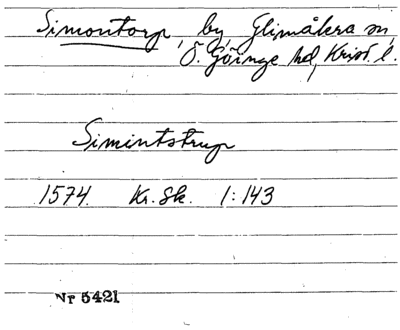 Simontorp, by, Glimåkra sn,
Ö. Göinge hd, Krist. l.
Simintstrup
1574. Kr. Sk. 1:143
Nr 5421